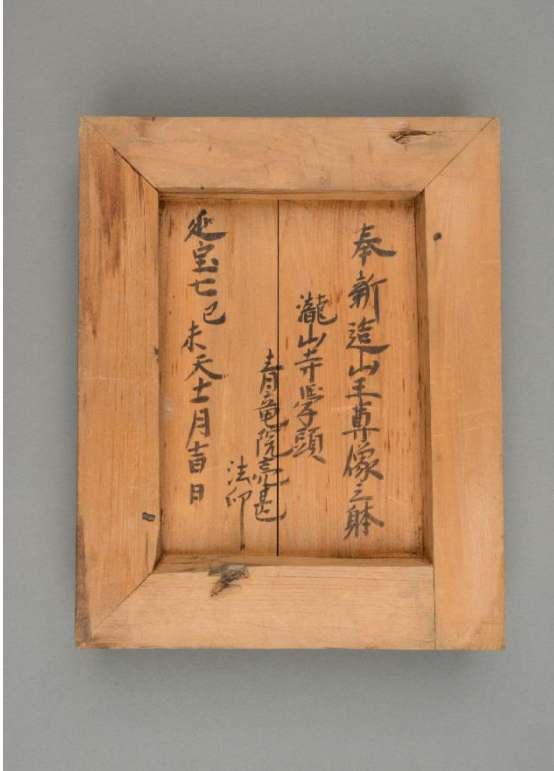 奉新造山王尊像三躰
瀧山寺学頭
青竜院亮甚
法印
延宝七己未天十一月吉日